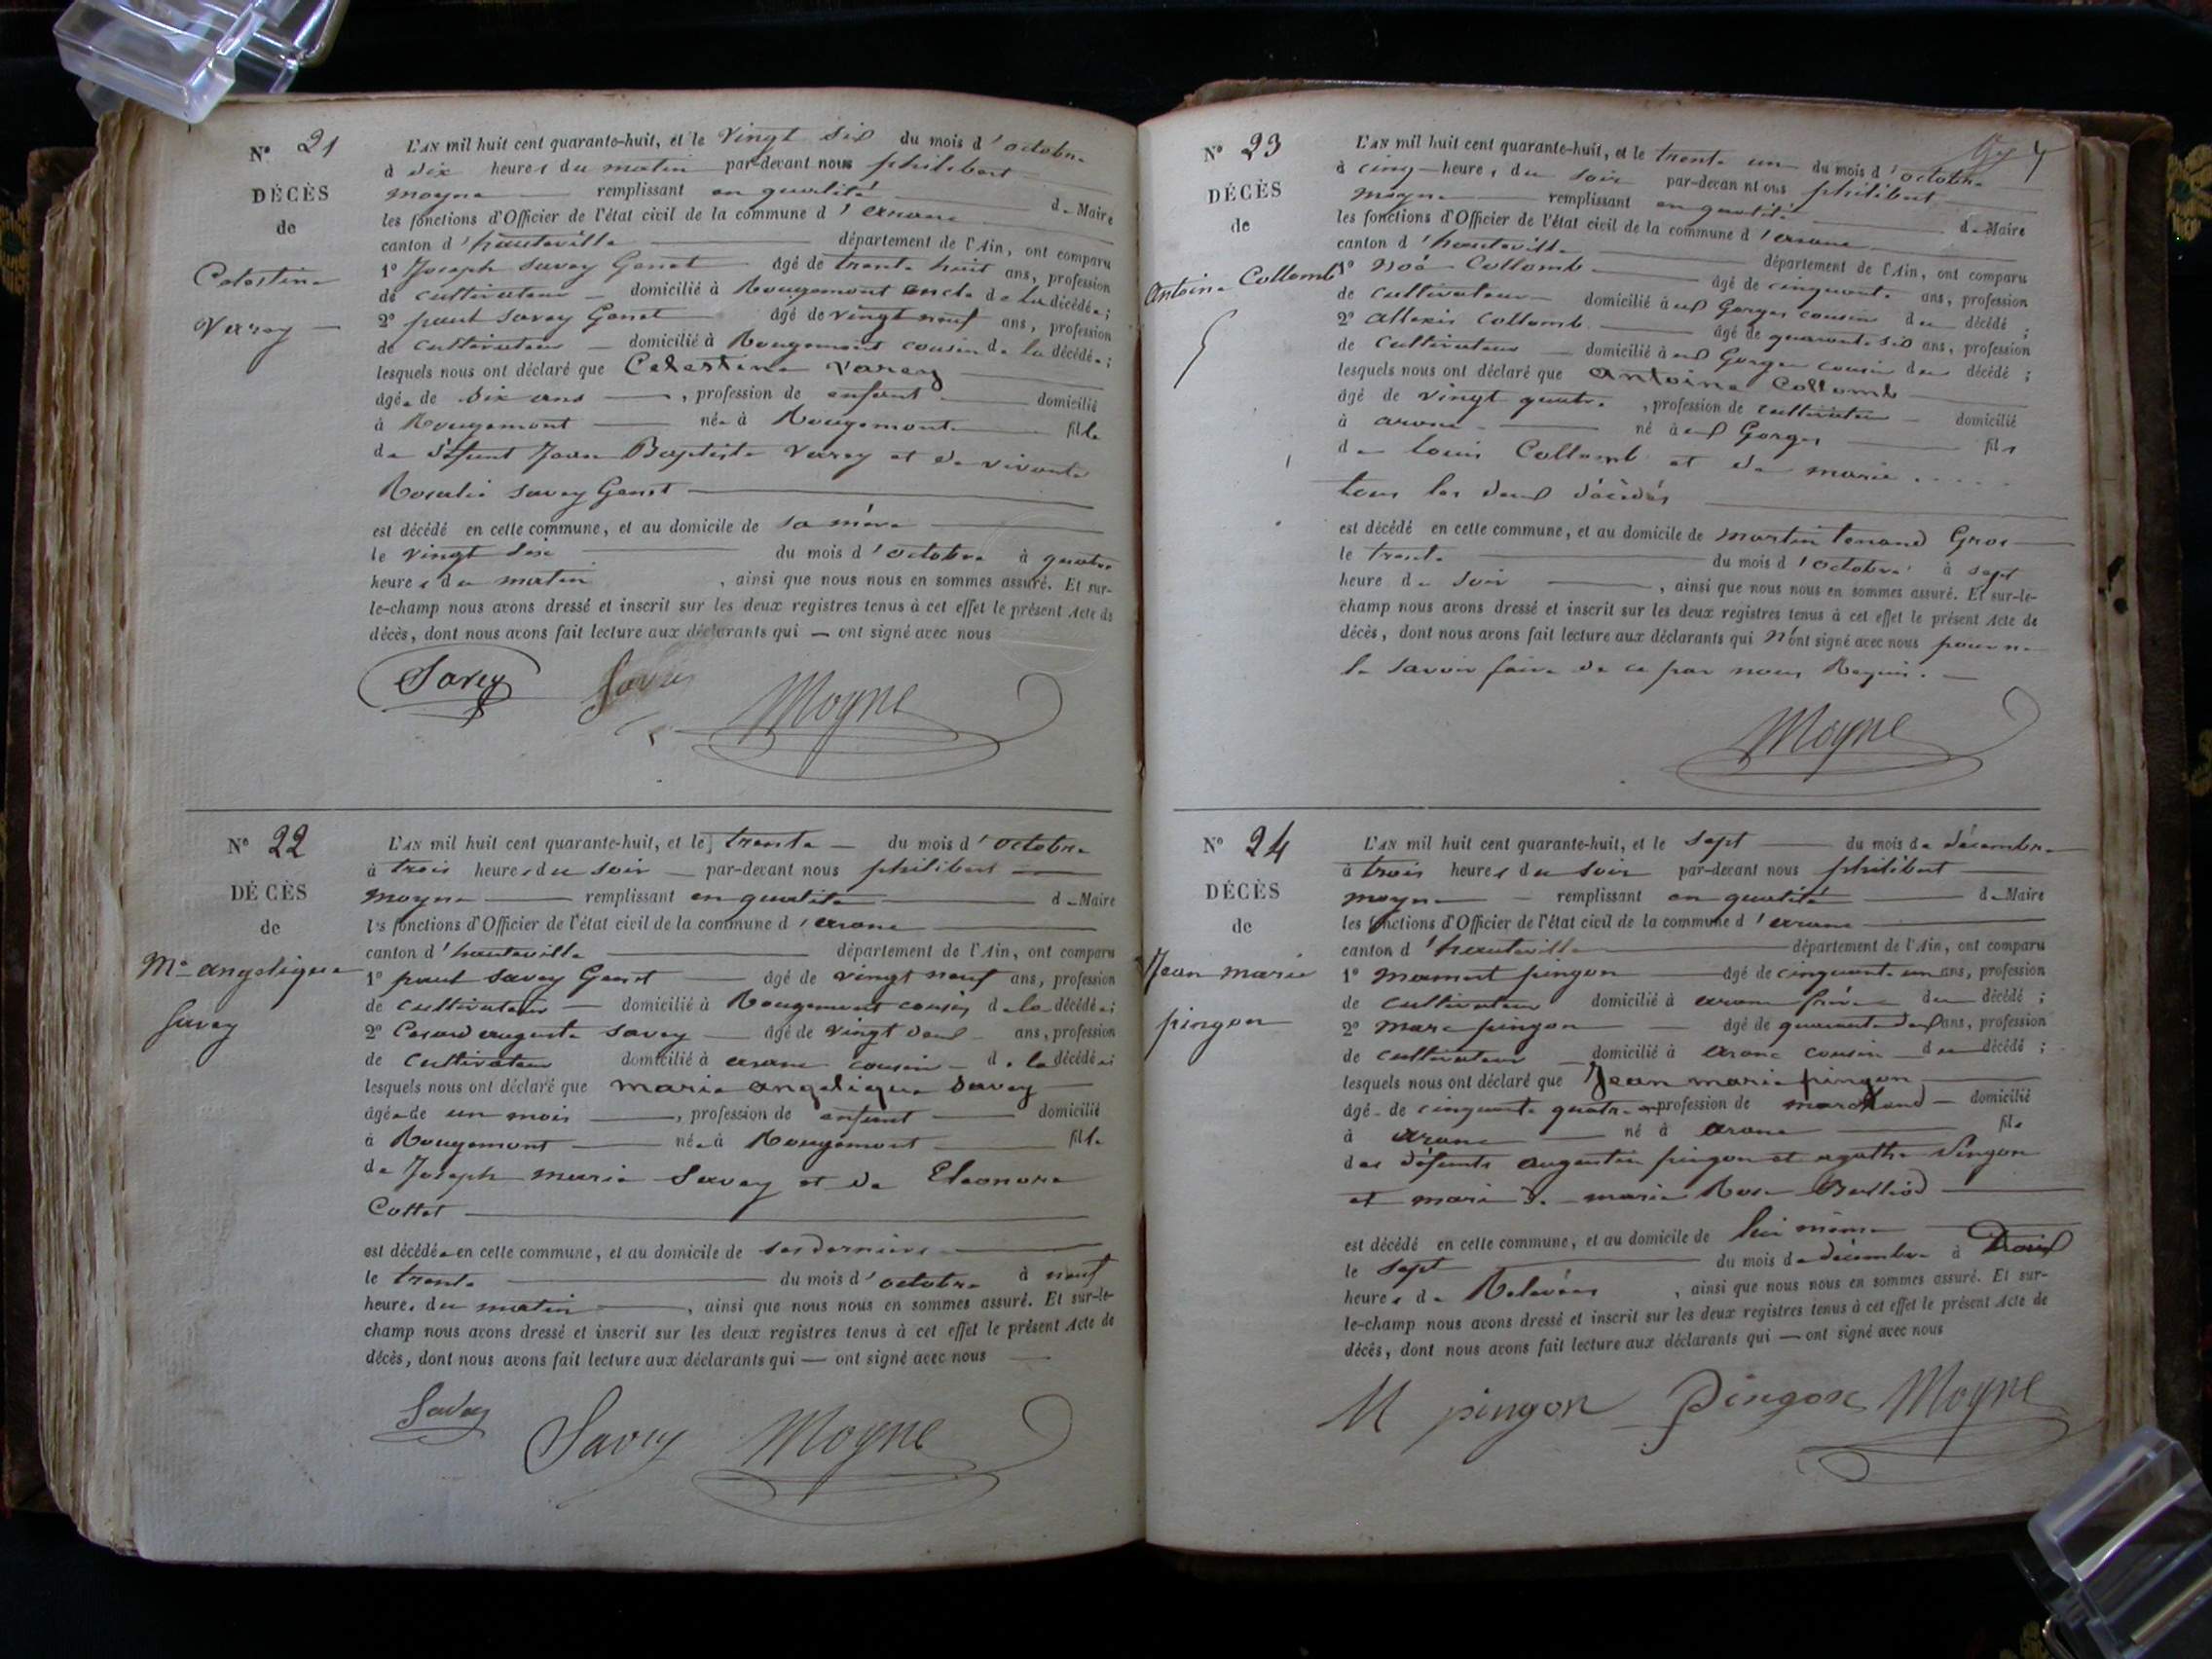 N° 21
DÉCÈS
de
Celestine
Varey
L'AN mil huit cent quarante-huit, et le vingt six du mois d'octobre
à dix heures du matin par-devant nous philibert
moyne remplissant en qualité de Maire
les fonctions d'Officier de l'état civil de la commune d'arane
canton d'hauteville département de l'Ain, ont comparu
1° Joseph Savey Genet âgé de trente huit ans, profession
de cultivateur domicilié à Rougemont oncle de la décédée;
2° paul Savey Genet âgé de vingt neuf ans, profession
de cultivateur domicilié à Rougemont cousin de la décédée;
lesquels nous ont déclaré que Celestine Varey
âgée de dix ans, profession de enfant domicilié
à Rougemont née à Rougemont fille
de défunt Jean Baptiste Varey et de vivante
Rosalie Savey Genet
est décédé en cette commune, et au domicile de sa mère
le vingt six du mois d'octobre à quatre
heures du matin, ainsi que nous nous en sommes assuré. Et sur-
le-champ nous avons dressé et inscrit sur les deux registres tenus à cet effet le présent Acte de
décès, dont nous avons fait lecture aux déclarants qui — ont signé avec nous
Savey Savey Moyne
N° 22
DÉCÈS
de
Me angelique
Savey
L'AN mil huit cent quarante-huit, et le trente du mois d'octobre
à trois heures du soir par-devant nous philibert
moyne remplissant en qualité de Maire
les fonctions d'Officier de l'état civil de la commune d'arane
canton d'hauteville département de l'Ain, ont comparu
1° paul Savey Genet âgé de vingt neuf ans, profession
de cultivateur domicilié à Rougemont cousin de la décédée;
2° Cesard auguste Savey âgé de vingt deux ans, profession
de cultivateur domicilié à arane cousin de la décédée;
lesquels nous ont déclaré que marie angelique Savey
âgée de un mois, profession de enfant domicilié
à Rougemont née à Rougemont fille
de Joseph marie Savey et de Eleonore
Cottet
est décédée en cette commune, et au domicile de ses derniers
le trente du mois d'octobre à neuf
heures du matin, ainsi que nous nous en sommes assuré. Et sur-le-
champ nous avons dressé et inscrit sur les deux registres tenus à cet effet le présent Acte de
décès, dont nous avons fait lecture aux déclarants qui — ont signé avec nous
Savey Savey Moyne
N° 23
DÉCÈS
de
Antoine Collomb
L'AN mil huit cent quarante-huit, et le trente un du mois d'octobre
à cinq heures du soir par-devan nt ous philibert
moyne remplissant en qualité de Maire
les fonctions d'Officier de l'état civil de la commune d'arane
canton d'hauteville département de l'Ain, ont comparu
1° Noé Collomb âgé de cinquante ans, profession
de cultivateur domicilié à Gorges cousin du décédé;
2° Allexis Collomb âgé de quarante six ans, profession
de cultivateur domicilié à Gorges cousin du décédé;
lesquels nous ont déclaré que Antoine Collomb
âgé de vingt quatre, profession de cultivateur domicilié
à arane né à Gorges fils
de Louis Collomb et de marie .....
tous les deux décédés
est décédé en cette commune, et au domicile de martin tenand Gros
le trente du mois d'octobre à sept
heure de soir, ainsi que nous nous en sommes assuré. Et sur-le-
champ nous avons dressé et inscrit sur les deux registres tenus à cet effet le présent Acte de
décès, dont nous avons fait lecture aux déclarants qui n'ont signé avec nous pour ne
le savoir faire de ce par nous Requis.
Moyne
N° 24
DÉCÈS
de
Jean marie
pingon
L'AN mil huit cent quarante-huit, et le sept du mois de décembre
à trois heures du soir par-devant nous philibert
moyne remplissant en qualité de Maire
les fonctions d'Officier de l'état civil de la commune d'arane
canton d'hauteville département de l'Ain, ont comparu
1° mamert pingon âgé de cinquante un ans, profession
de cultivateur domicilié à arane frère du décédé;
2° marc pingon âgé de quarante deux ans, profession
de cultivateur domicilié à arane cousin du décédé;
lesquels nous ont déclaré que Jean marie pingon
âgé de cinquante quatre profession de marchand domicilié
à arane né à arane fils
des défunts augustin pingon et agathe pingon
et mari de marie Rose Berliod
est décédé en cette commune, et au domicile de lui même
le sept du mois de décembre à
heures de Relevées, ainsi que nous nous en sommes assuré. Et sur-
le-champ nous avons dressé et inscrit sur les deux registres tenus à cet effet le présent Acte de
décès, dont nous avons fait lecture aux déclarants qui — ont signé avec nous
M pingon Pingon Moyne